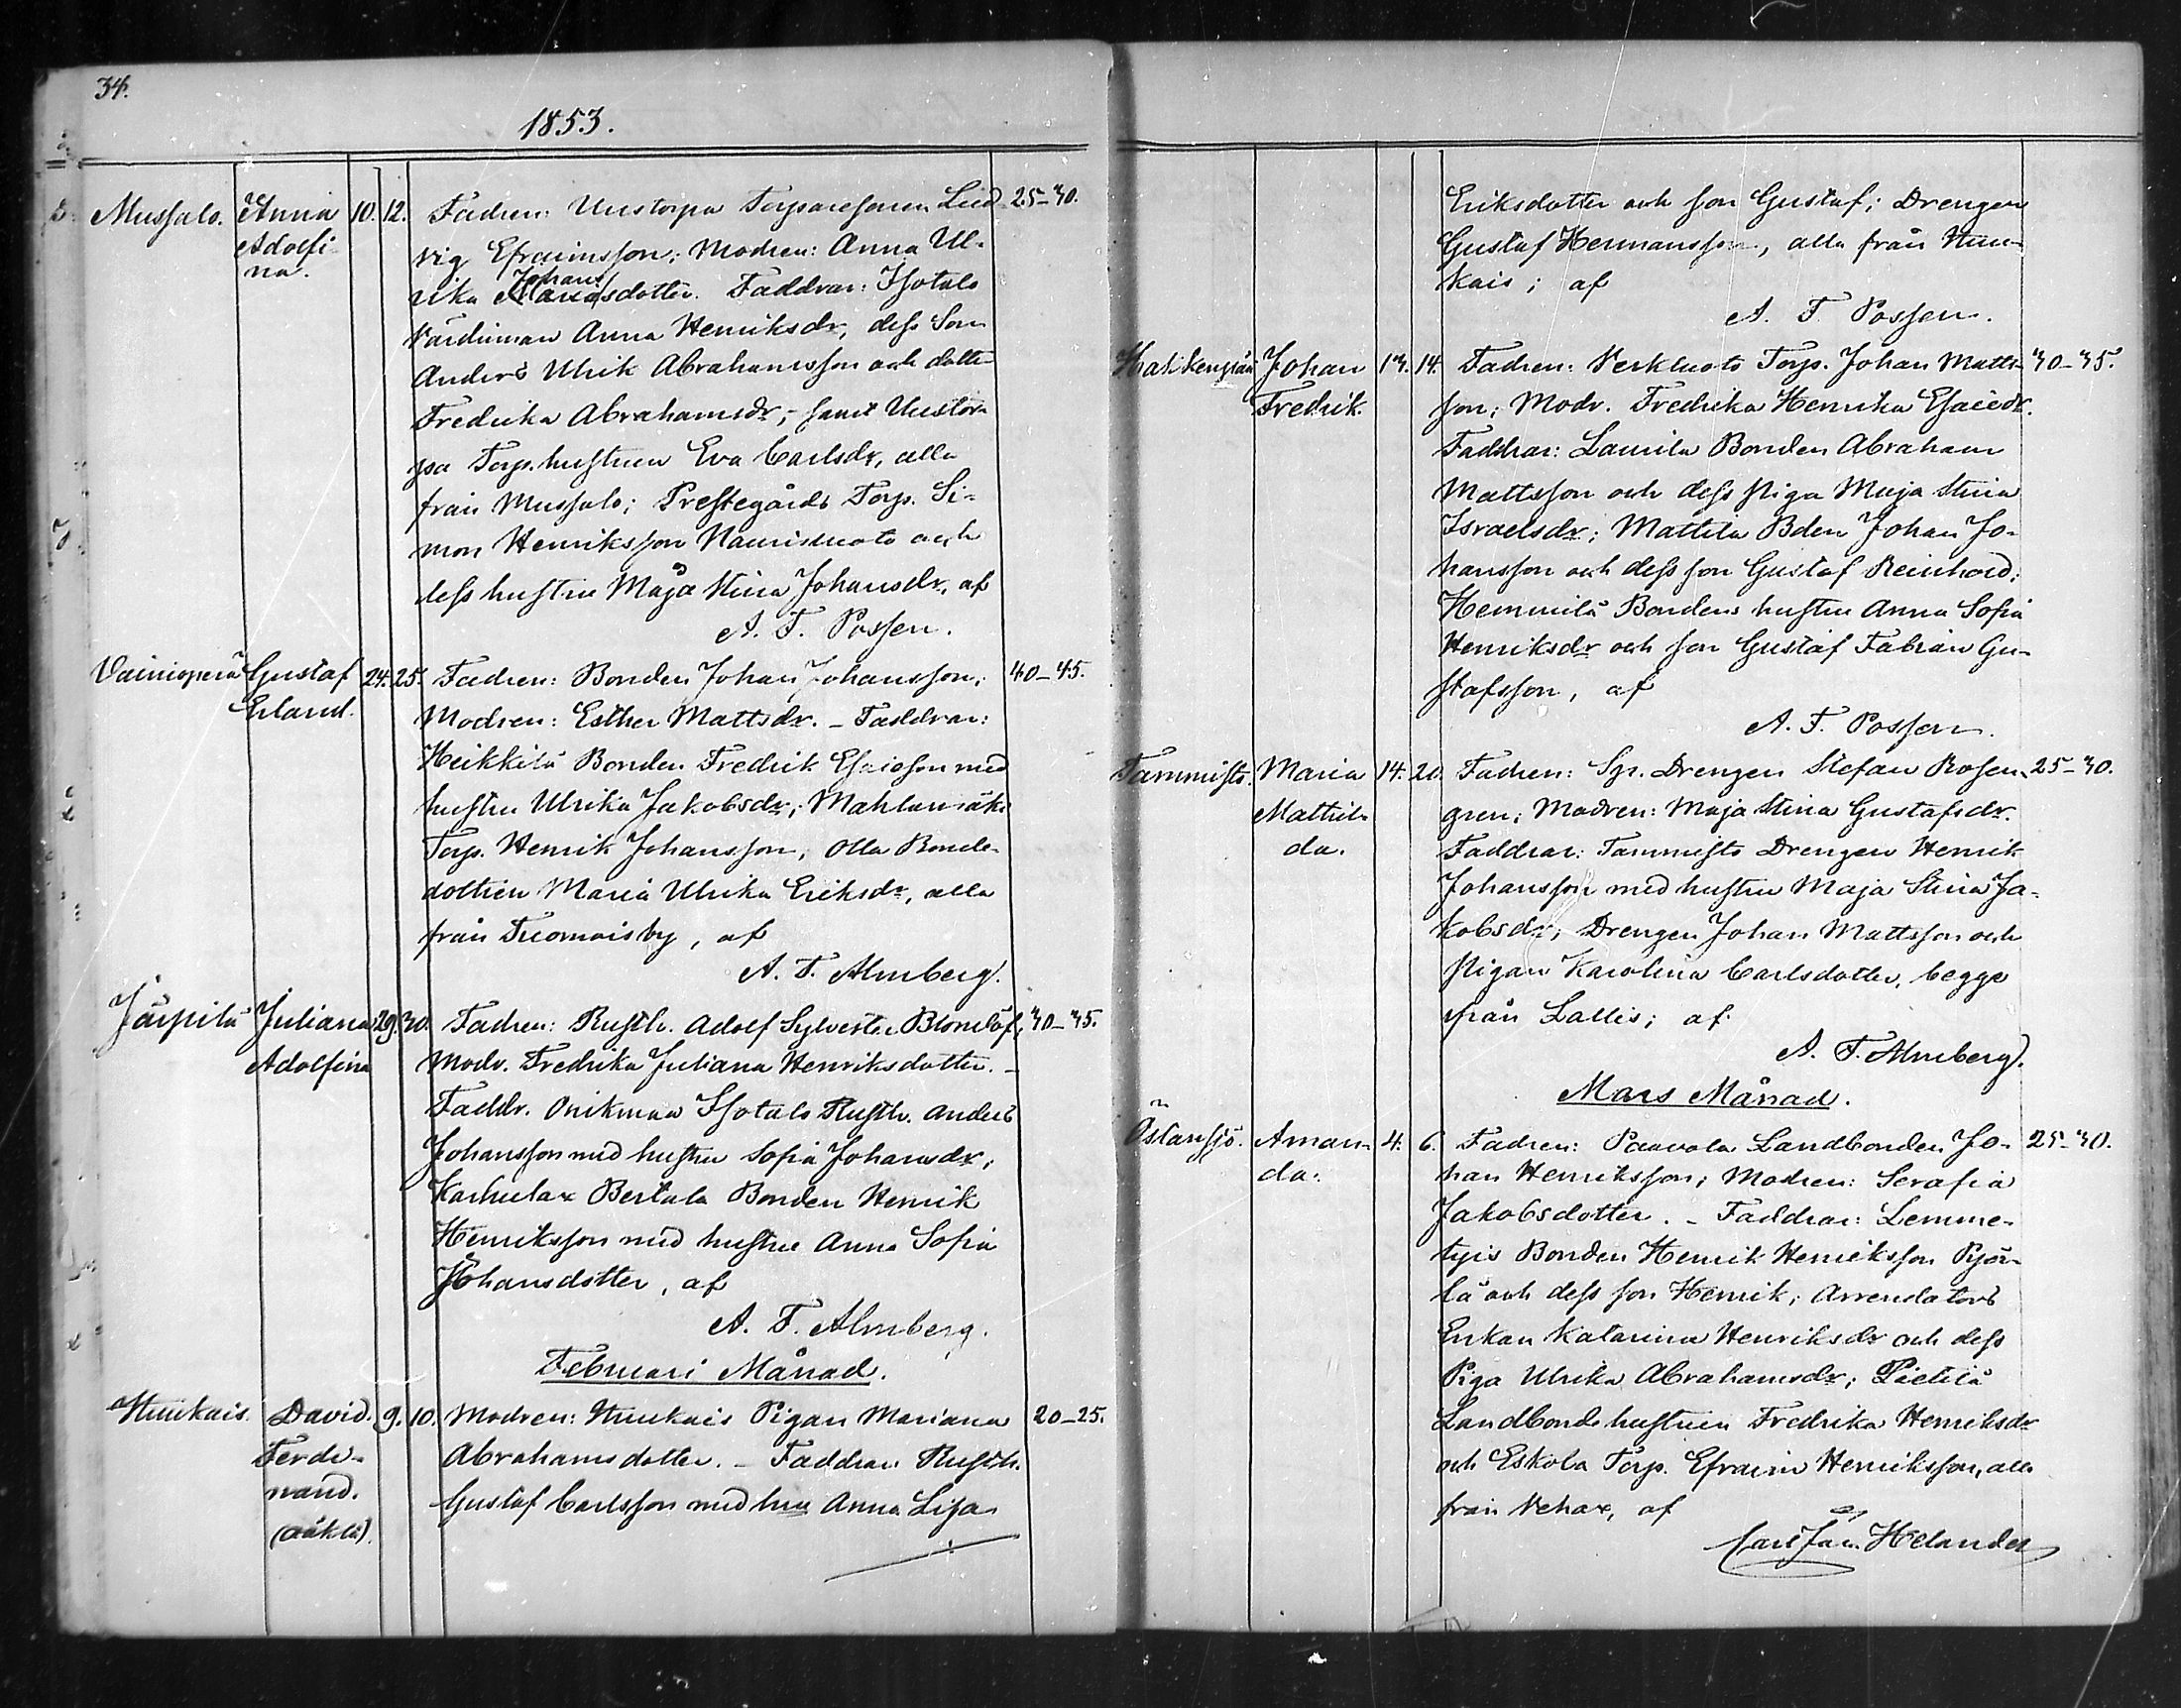 34.
1853.
Mussalo. Anna Adolfi- na. 10. 12. Fadren: Uustorpa Torparesonen Lud 25-30.
vig Efraimsson; Modren: Anna Ul-
rika Johansdotter. Faddrar: Isotalo
Värdinnan Anna Henriksdr, dess Son
Anders Ulrik Abrahamsson och dotter
Fredrika Abrahamsdr; samt Uustor-
pa Torp. hustrun Eva Carlsdr, alla
från Mussalo; Prestegårds Torp. Si-
mon Henriksson Naurismoto och
dess hustru Maja Stina Johansdr, af
A. F. Possen.
Vainioperä Gustaf Erland. 24. 25. Fadren: Bonden Johan Johansson; 40-45.
Modren: Esther Mattsdr. - Faddrar:
Heikkilä Bonden Fredrik Esaiosson med
hustru Ulrika Jakobsdr;
Torp. Henrik Johansson, Olla Bonde-
dottren Maria Ulrika Eriksdr, alla
från Tuomoisby, af
A. F. Almberg.
Järpilä Juliana Adolfina 29. 30. Fadren: Rusth. Adolf Sylvester Blomlöf; 30-35.
Modr. Fredrika Juliana Henriksdotter. -
Faddr. Orikmaa Isotalo Rusth. Anders
Johansson med hustru Sofia Johansdr;
Karhulax Bertula Bonden Henrik
Henriksson med hustru Anna Sofia
Johansdotter, af
A. F. Almberg.
Februari Månad.
Nuukais. David Ferdi- nand. (oäkta). 9. 10. Modren: Nuukais Pigan Mariana 20-25.
Abrahamsdotter. - Faddrar Rusth.
Gustaf Carlsson med hru Anna Lisa
Eriksdotter och son Gustaf; Drengen
Gustaf Hermansson, alla från Nuu-
kais; af
A. F. Possen.
Johan Fredrik. 13. 14. Fadren: Verkluoto Torp. Johan Matts- 30-35.
son; Modr. Fredrika Henrika Esaiedr.
Faddrar: Laurila Bonden Abraham
Mattsson och dess piga Maja Stina
Israelsdr; Mattila Bden Johan Jo-
hansson och dess son Gustaf Reinhold;
Hemmilä Bondens hustru Anna Sofia
Henriksdr och son Gustaf Fabian Gu-
stafsson, af
A. F. Possen.
Tammisto. Maria Mathil- da. 14. 20. Fadren: Spr. Drengen Stefan Rosen- 25-30.
gren; Modren: Maja Stina Gustafsdr.
Faddrar: Tammisto Drengen Henrik
Johansson med hustru Maja Stina Ja-
kobsdr; Drengen Johan Mattsson och
pigan Karolina Carlsdotter, begge
från Lallis; af
A. F. Almberg.
Mars Månad.
Östansjö. Aman- da. 4. 6. Fadren: Paavola Landbonden Jo- 25-30.
han Henriksson; Modren: Serafia
Jakobsdotter. - Faddrar: Lemme-
tyis Bonden Henrik Henriksson Pyör-
lä och dess son Henrik; Arrendators
Enkan Katarina Henriksdr och dess
Piga Ulrika Abrahamsdr; Pietilä
Landbonde hustrun Fredrika Henriksdr
och Eskola Torp. Efraim Henriksson, alla
från Vehax, af
Carl Jac. Helander